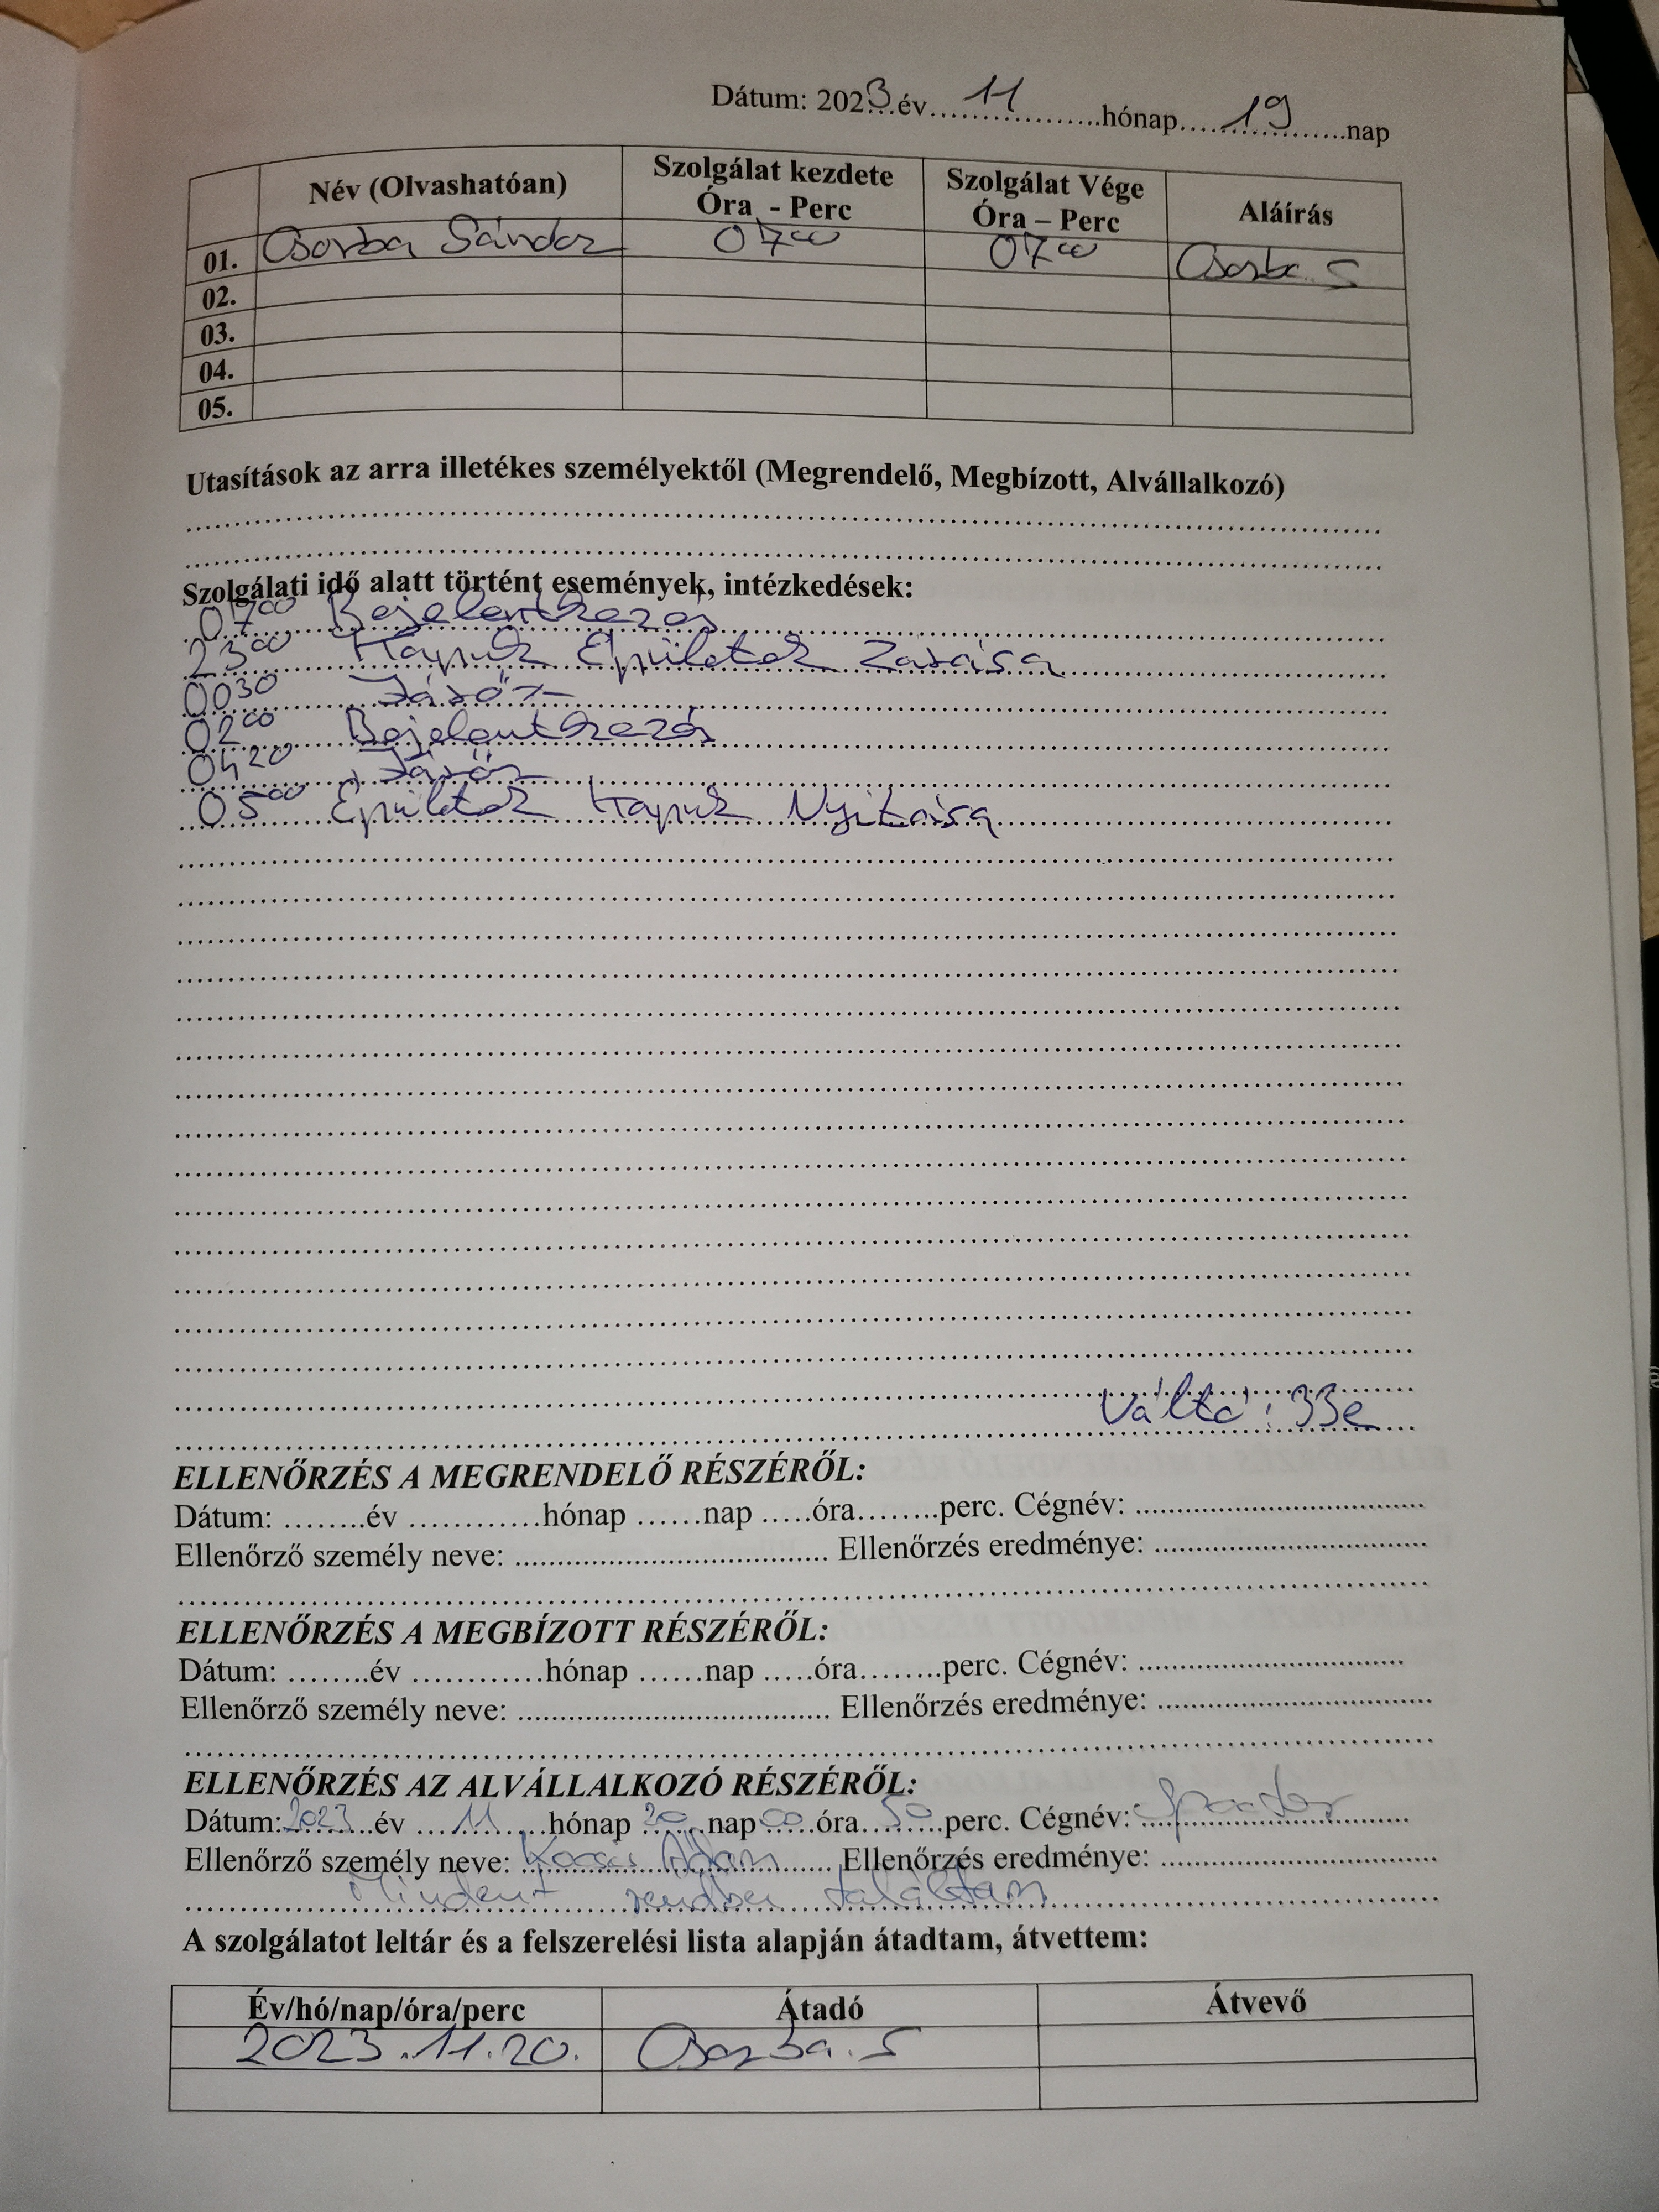 Dátum: 2023 év 11 hónap 19 nap
Név (Olvashatóan) Szolgálat kezdete Óra - Perc Szolgálat Vége Óra – Perc Aláírás
01. Csorba Sándor 07 00 07 00 Csorba S
02.
03.
04.
05.
Utasítások az arra illetékes személyektől (Megrendelő, Megbízott, Alvállalkozó)
Szolgálati idő alatt történt események, intézkedések:
07 00 Bejelentkezés
23 00 Kapuk Épületek Zárása
00 30 Járőr
02 00 Bejelentkezés
04 20 Járőr
05 00 Épületek Kapuk Nyitása
Váltó: 33e
ELLENŐRZÉS A MEGRENDELŐ RÉSZÉRŐL:
Dátum: ........év ............hónap ......nap .....óra........perc. Cégnév: ....................................
Ellenőrző személy neve: ....................................... Ellenőrzés eredménye: ..................................
ELLENŐRZÉS A MEGBÍZOTT RÉSZÉRŐL:
Dátum: ........év ............hónap ......nap .....óra........perc. Cégnév: .................................
Ellenőrző személy neve: ....................................... Ellenőrzés eredménye: ..................................
ELLENŐRZÉS AZ ALVÁLLALKOZÓ RÉSZÉRŐL:
Dátum: 2023 év 11 hónap 20 nap 00 óra 50 perc. Cégnév:
Ellenőrző személy neve: Ádám Ellenőrzés eredménye:
Mindent rendben találtam
A szolgálatot leltár és a felszerelési lista alapján átadtam, átvettem:
Év/hó/nap/óra/perc Átadó Átvevő
2023.11.20. Csorba. S